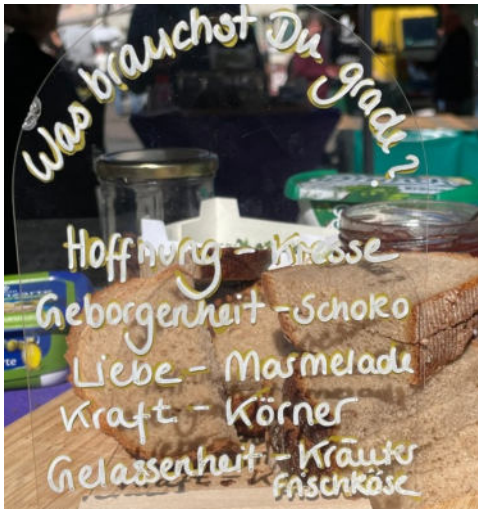 Was brauchst Du grade?
Hoffnung - Kresse
Geborgenheit - Schoko
Liebe - Marmelade
Kraft - Körner
Gelassenheit - Kräuter
frischkäse